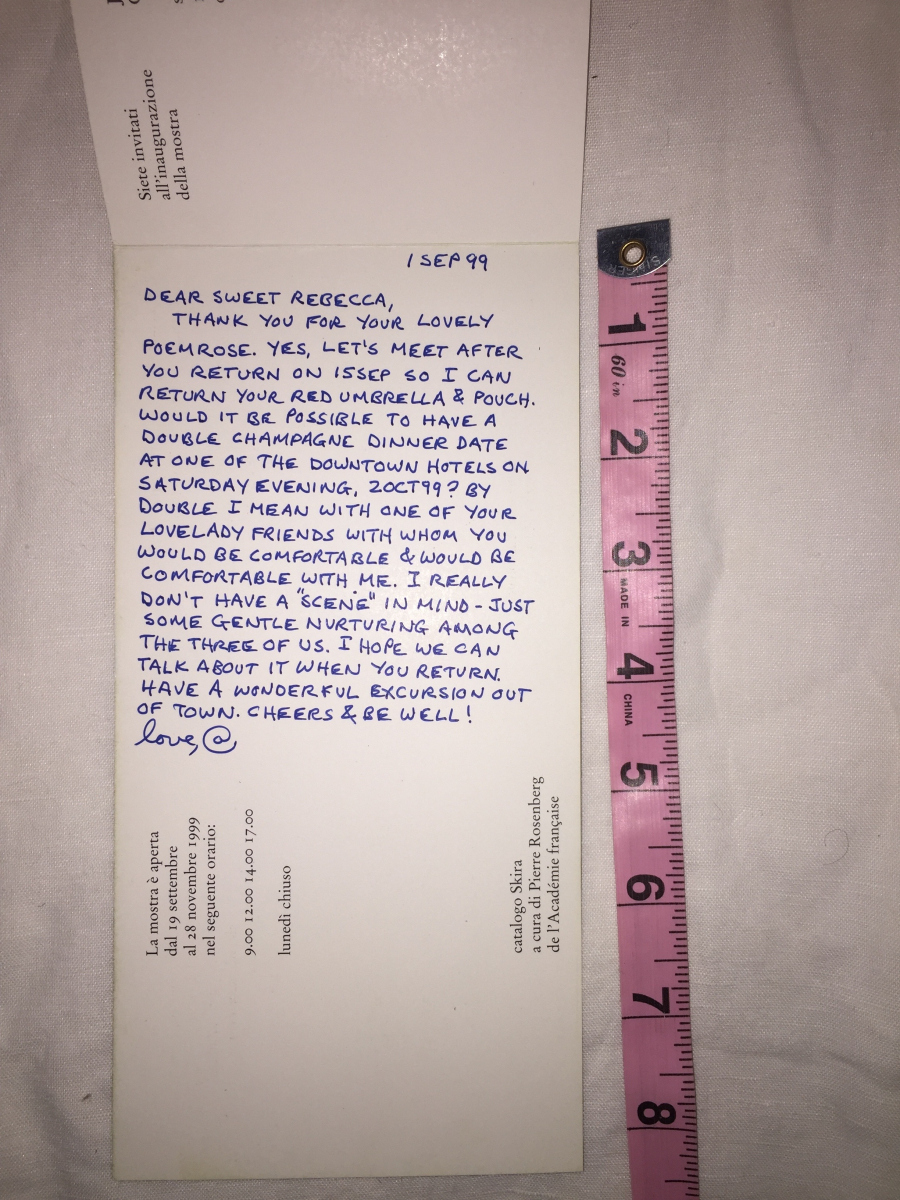 Siete invitati
all'inaugurazione
della mostra
1 SEP 99
DEAR SWEET REBECCA,
THANK YOU FOR YOUR LOVELY
POEMROSE. YES, LET'S MEET AFTER
YOU RETURN ON 15SEP SO I CAN
RETURN YOUR RED UMBRELLA & POUCH.
WOULD IT BE POSSIBLE TO HAVE A
DOUBLE CHAMPAGNE DINNER DATE
AT ONE OF THE DOWNTOWN HOTELS ON
SATURDAY EVENING, 2OCT99? BY
DOUBLE I MEAN WITH ONE OF YOUR
LOVELADY FRIENDS WITH WHOM YOU
WOULD BE COMFORTABLE & WOULD BE
COMFORTABLE WITH ME. I REALLY
DON'T HAVE A "SCENE" IN MIND - JUST
SOME GENTLE NURTURING AMONG
THE THREE OF US. I HOPE WE CAN
TALK ABOUT IT WHEN YOU RETURN.
HAVE A WONDERFUL EXCURSION OUT
OF TOWN. CHEERS & BE WELL!
love, @
La mostra è aperta
dal 19 settembre
al 28 novembre 1999
nel seguente orario:
9.00 12.00 14.00 17.00
lunedì chiuso
catalogo Skira
a cura di Pierre Rosenberg
de l'Académie française
SINGER
1
60 in
2
3
MADE IN
4
CHINA
5
6
7
8